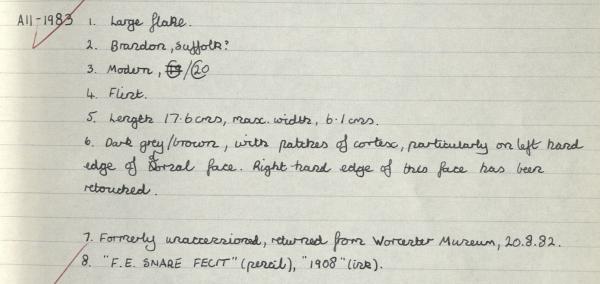 A11-1983 1. Large flake.
2. Brandon, Suffolk?
3. Modern, C19/C20
4. Flint.
5. Length 17.6 cms, max. width, 6.1 cms.
6. Dark grey/brown, with patches of cortex, particularly on left hand
edge of dorsal face. Right hand edge of this face has been
retouched.
7. Formerly unaccessioned, returned from Worcester Museum, 20.8.82.
8. "F.E. SNARE FECIT" (pencil), "1908" (ink).